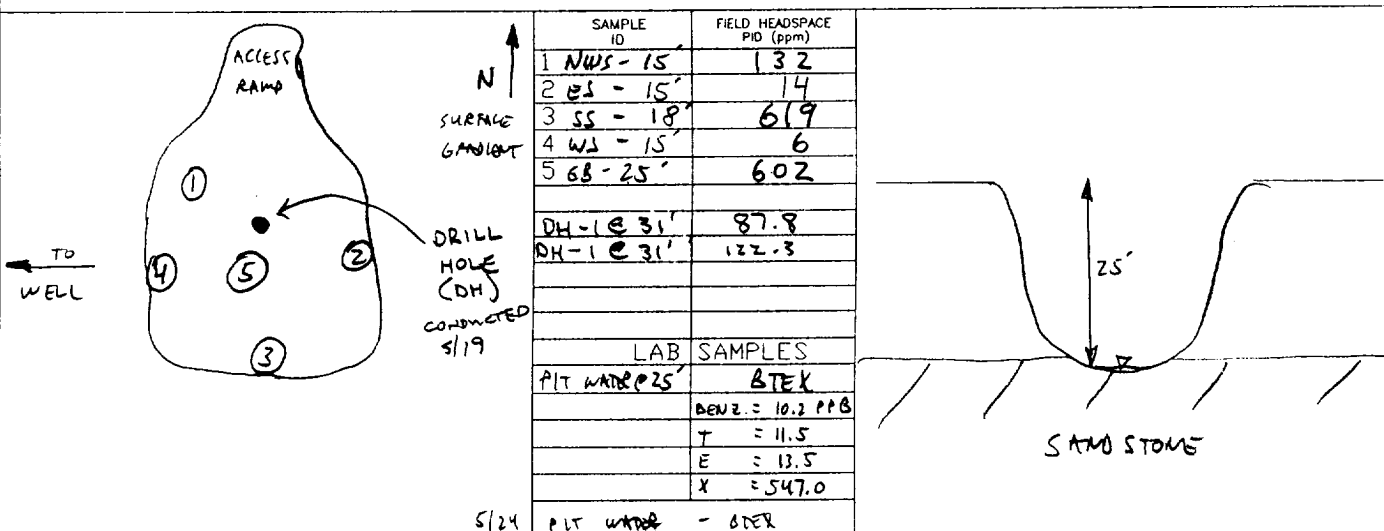 ACCESS
RAMP
①
②
③
④
⑤
← TO
WELL
N
SURFACE
GRADIENT
DRILL
HOLE
(DH)
CONDUCTED
5/19
SAMPLE ID FIELD HEADSPACE PID (ppm)
1 NWS - 15' 132
2 ES - 15' 14
3 SS - 18' 619
4 WS - 15' 6
5 GB - 25' 602
DH-1 @ 31' 87.8
DH-1 @ 31' 122.3
LAB SAMPLES
PIT WATER @ 25' BTEX
BENZ. = 10.2 PPB
T = 11.5
E = 13.5
X = 547.0
5/24 PIT WATER - BTEX
25'
SANDSTONE